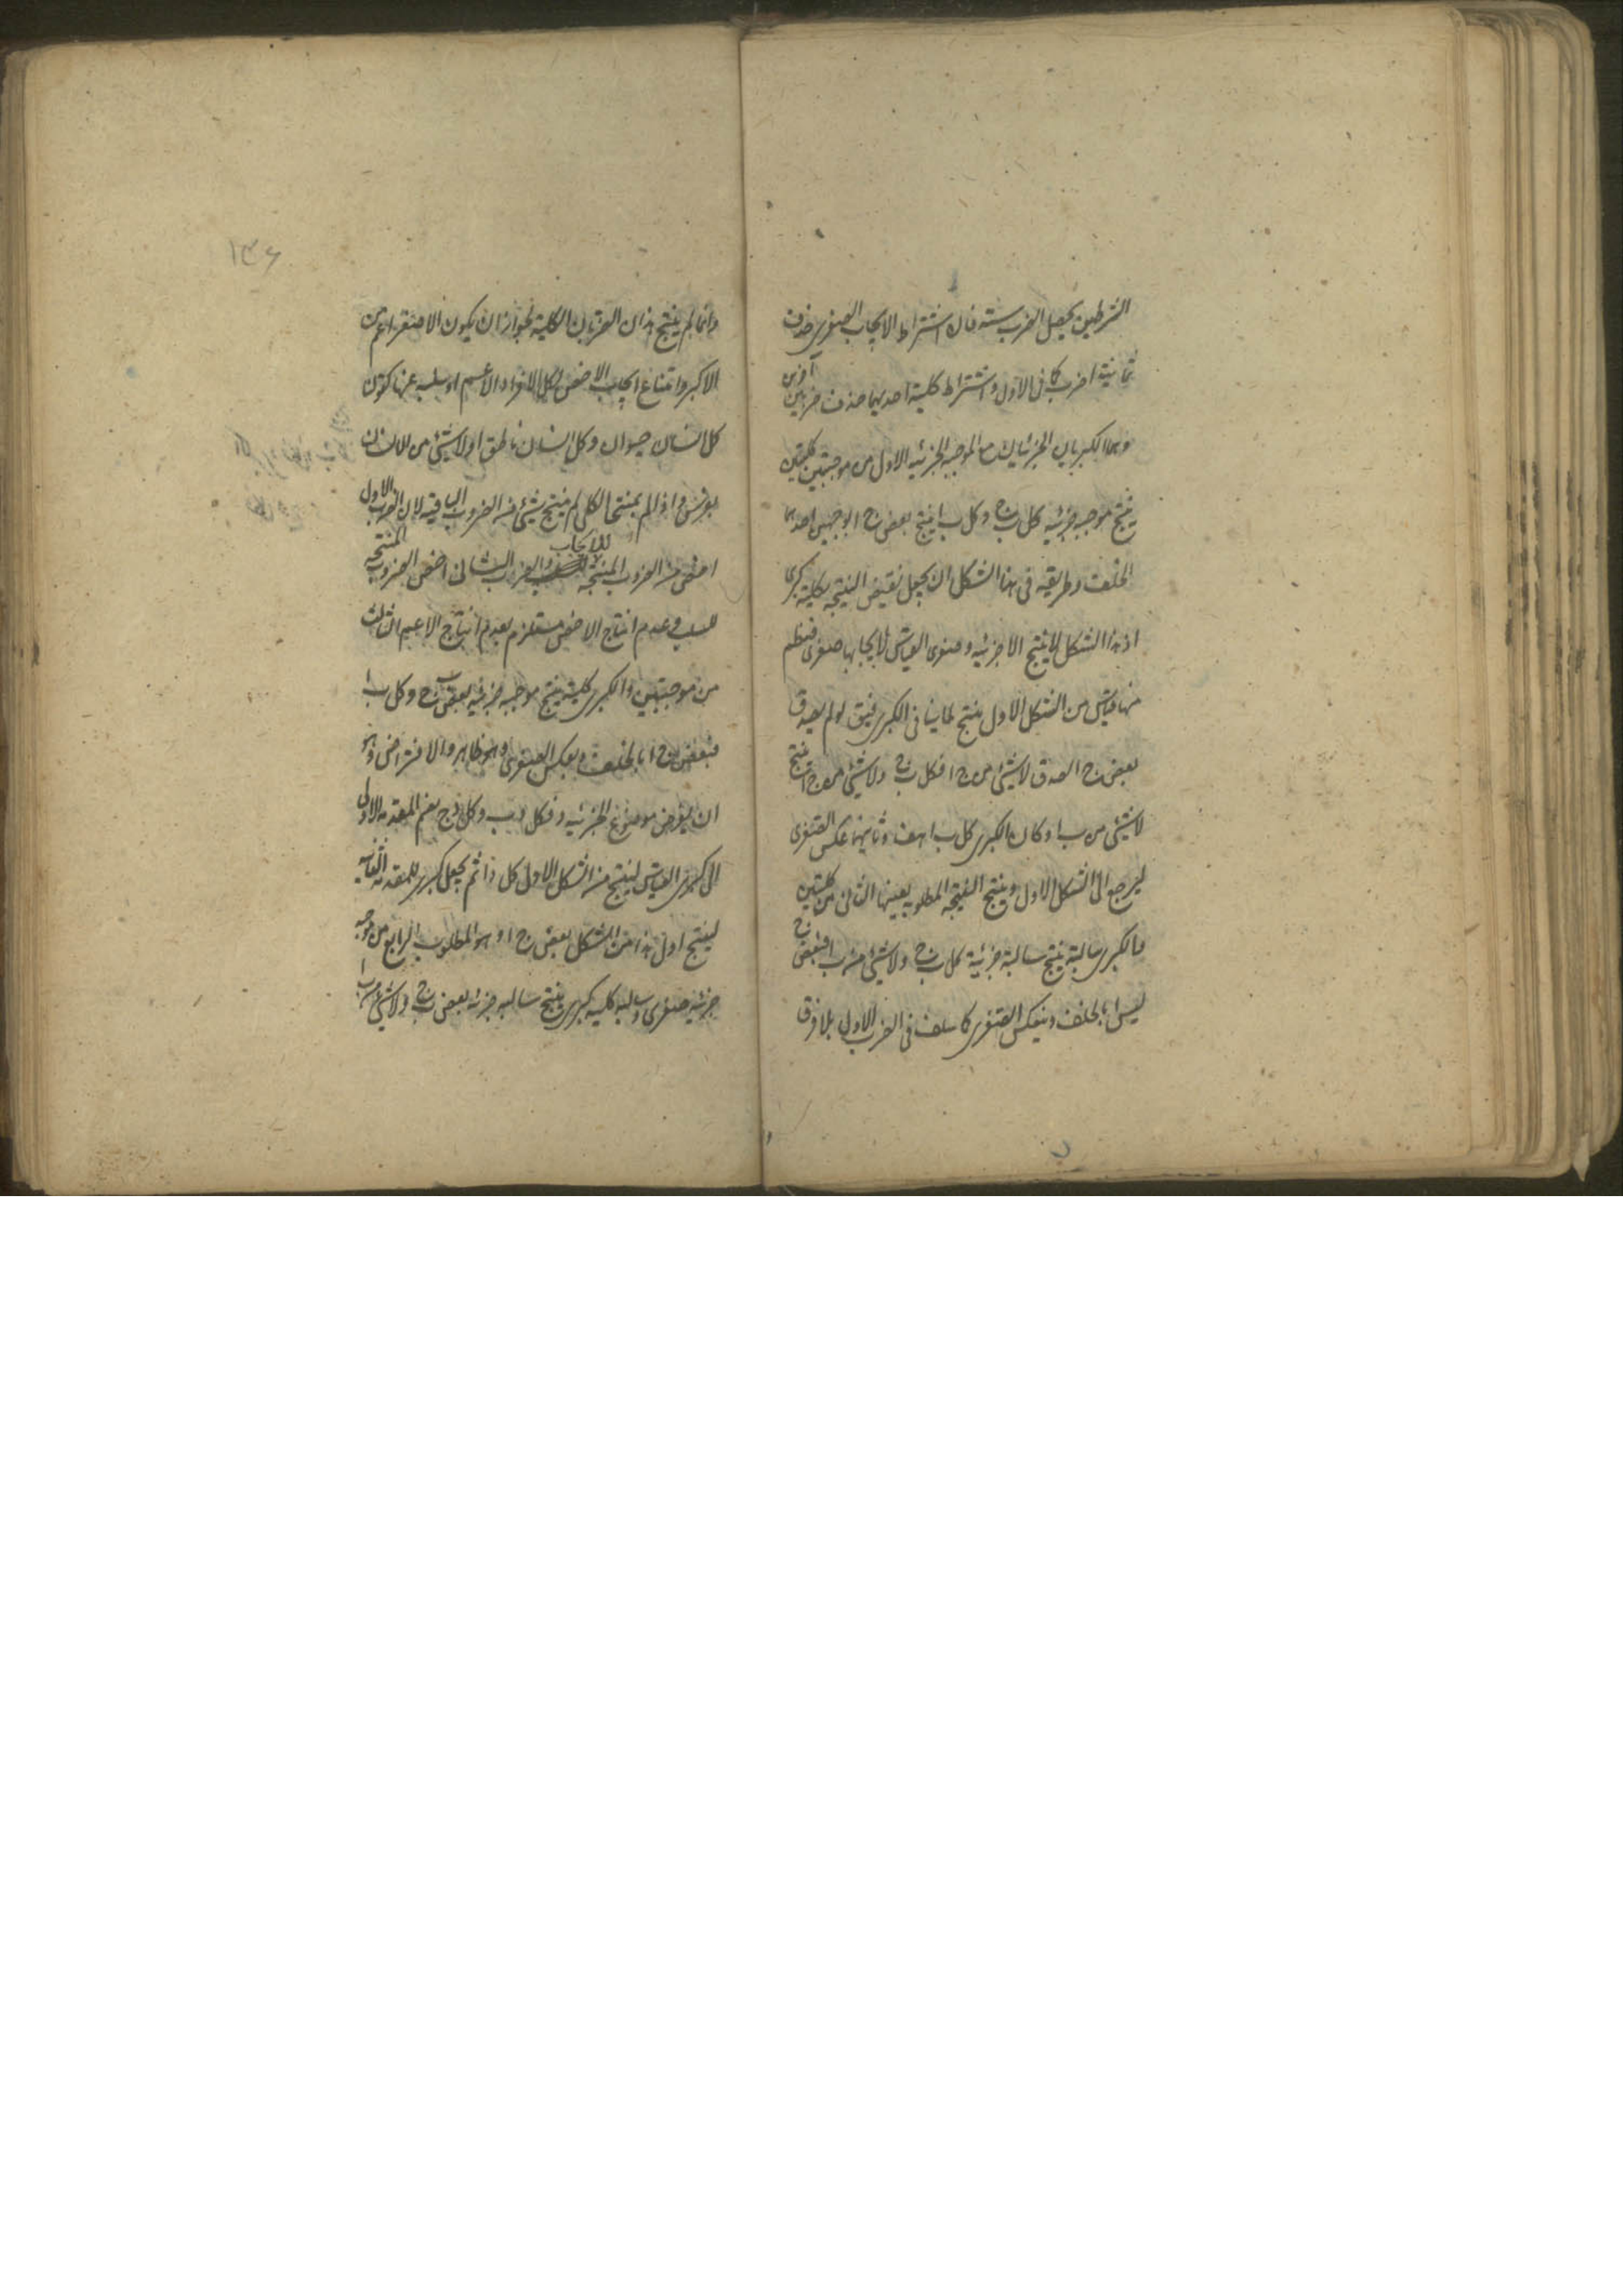 الشرطين يحصل الضرب ستة فان اشتراط الايجاب الصغرى حذف
ثمانية اضرب كما فى الاول واشتراط كلية احديهما حذف ضربين آخرين
وهما الكبريان الجزئيان مع الموجبة الجزئية الاول من موجبتين كليتين
ينتج موجبة جزئية كل ب ج وكل ب ا ينتج بعض ج ا بوجهين احدهما
الخلف وطريقه فى هذا الشكل ان يجعل نقيض النتيجة لكليته كبرى
اذ هذا الشكل لا ينتج الا جزئية وصغرى القياس لايجابها صغرى فينظم
منها قياس من الشكل الاول ينتج لما ينافى الكبرى فيق لو لم يصدق
بعض ج ا لصدق لا شيئ من ج ا فكل ب ج ولا شيئ من ج ا ينتج
لا شيئ من ب ا وكان الكبرى كل ب ا هف وثانيهما عكس الصغرى
ليرجع الى الشكل الاول وينتج النتيجة المطلوبة بعينها الثانى من كليتين
والكبرى سالبة ينتج سالبة جزئية كل ب ج ولا شيئ من ب ا فبعض ج
ليس ا بالخلف وبعكس الصغرى كما سلف فى الضرب الاول بلا فرق
١٣٦
وانما لم ينتج هذان الضربان الكلية لجواز ان يكون الاصغر اعم من
الاكبر وامتناع ايجاب الاخص لكل الافراد الاعم او سلبه عنها كقولنا
كل انسان حيوان وكل انسان ناطق او لا شيئ من الانسان
بفرس واذا لم ينتجا الكلى لم ينتج شيئ من الضروب الباقية لان الضرب الاول
اخص من الضروب المنتجة للايجاب والضرب الثانى اخص الضروب المنتجة
للسلب وعدم انتاج الاخص مستلزم لعدم انتاج الاعم الثالث
من موجبتين والكبرى كلية ينتج موجبة جزئية بعض ب ج وكل ب ا
فبعض ج ا بالخلف وبعكس الصغرى وهو ظاهر والافتراض وهو
ان يفرض موضوع الجزئية د فكل د ب وكل د ج يضم المقدمة الاولى
الى كبرى القياس لينتج من الشكل الاول كل د ا ثم يجعل كبرى للمقدمة الثانية
لينتج اول هذا الشكل بعض ج ا وهو المطلوب الرابع من موجبة
جزئية صغرى وسالبة كلية كبرى ينتج سالبة جزئية بعض ب ج ولا شيئ من ب ا